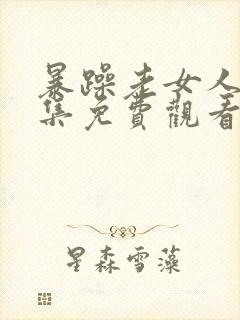 暴躁老女人
集免費觀看
星森雪藻